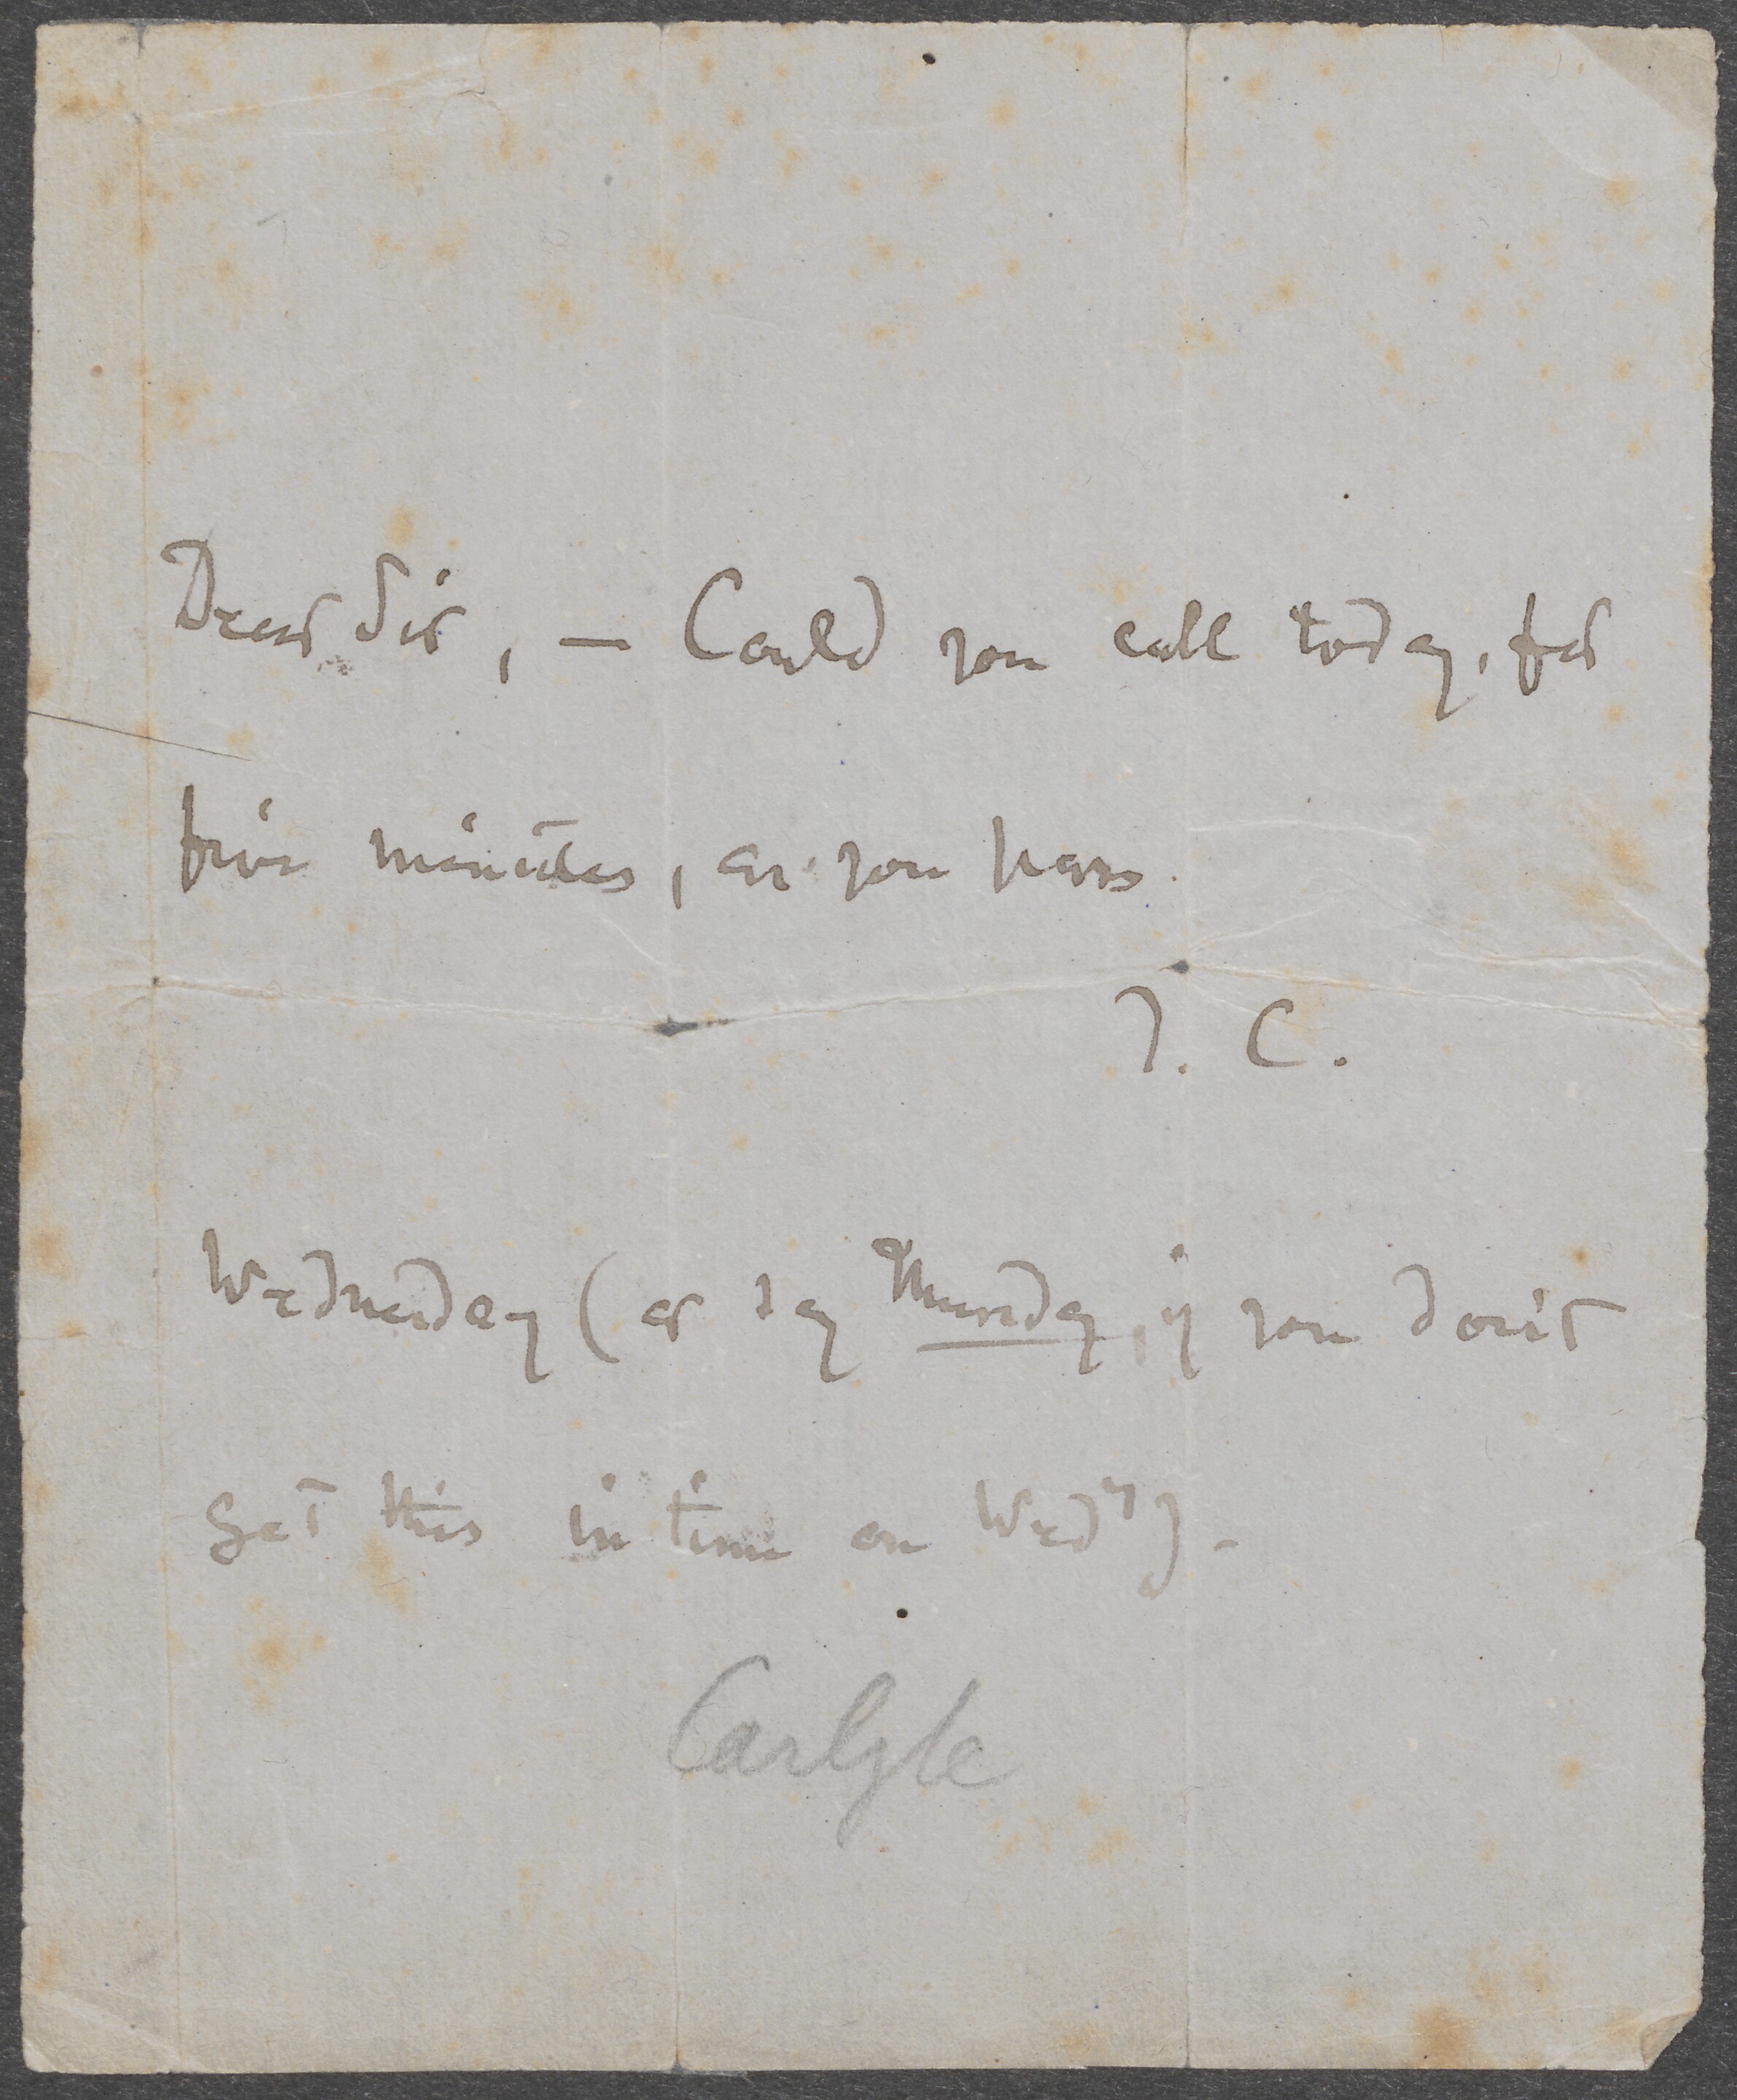 Dear Sir, — Could you call today, for
five minutes, as you pass.
T. C.
Wednesday (or say Thursday, if you don't
get this in time on Wedy).
Carlyle